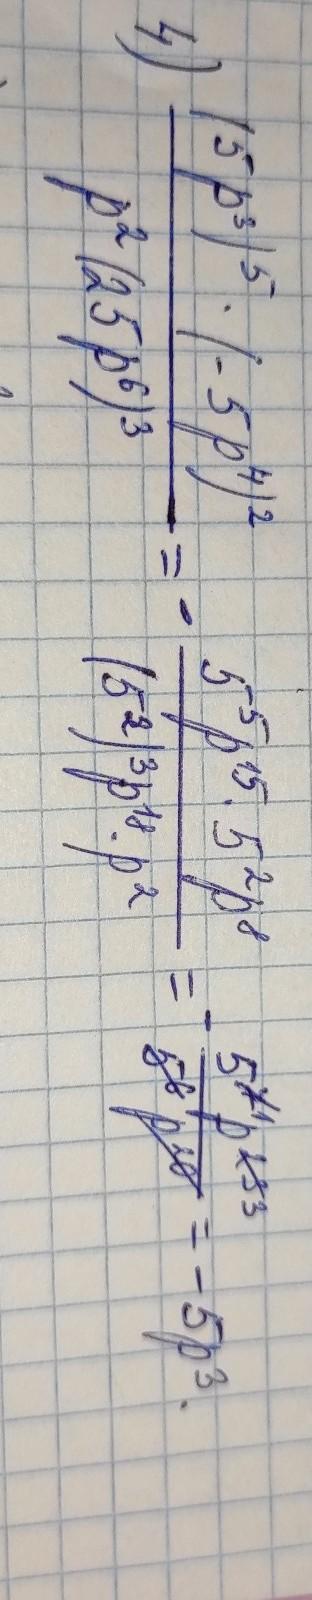 4) \frac{(5p^3)^5 \cdot (-5p^4)^2}{p^2(25p^6)^3} = -\frac{5^5p^{15} \cdot 5^2p^8}{(5^2)^3p^{18} \cdot p^2} = -\frac{5^{71}p^{}}{5^6p^{}} = -5p^3.